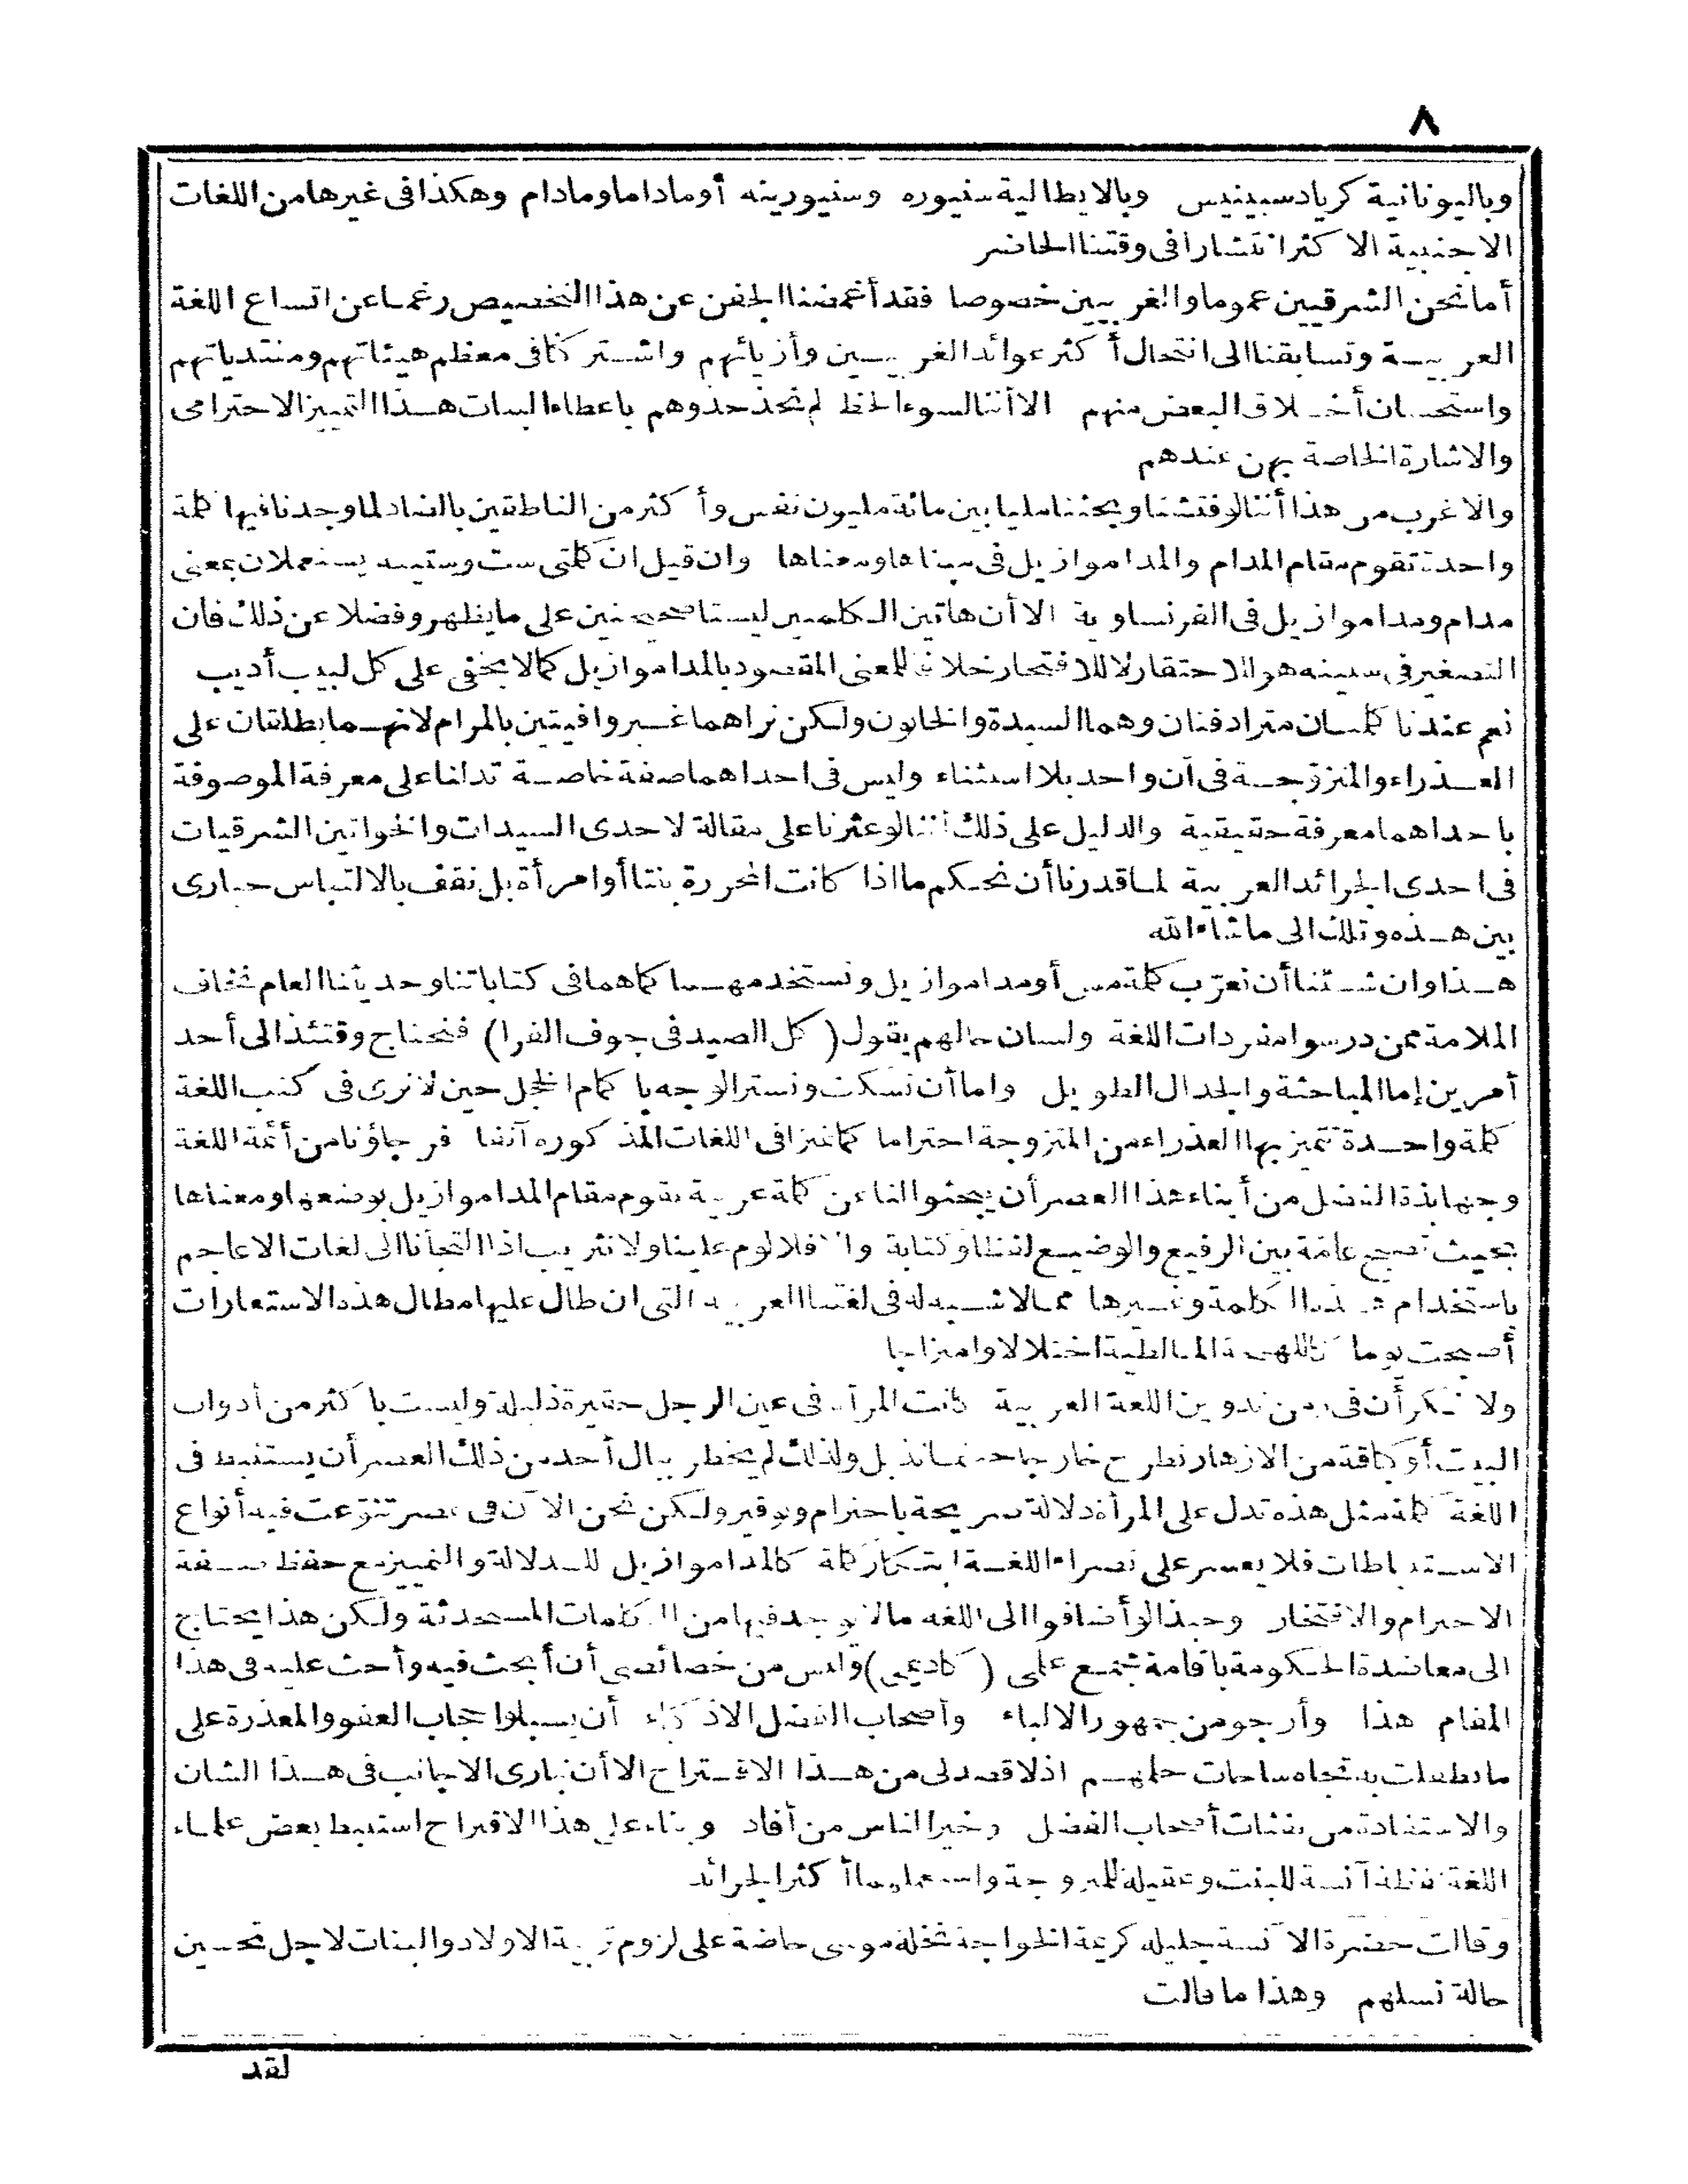 ٨
وباليونانية كرياد سبينيس وبالايطالية سنيوره وسنيورينه أوماداما ومادام وهكذا فى غيرها من اللغات
الاجنبية الاكثر انتشارا فى وقتنا الحاضر
أما نحن الشرقيين عموما والغربيين خصوصا فقد أغمضنا الجفن عن هذا التخصيص رغما عن اتساع اللغة
العربية وتسابقنا الى انتحال أكثر عوائد الغربيين وأزيائهم واشتركنا فى معظم هيئاتهم ومنتدياتهم
واستحسان أخلاق البعض منهم الا أننا لسوء الحظ لم نحذ حذوهم باعطاء البنات هذا التمييز الاحترامى
والاشارة الخاصة بهن عندهم
والاغرب من هذا أننا لو فتشنا وبحثنا مليا بين مائة مليون نفس وأكثر من الناطقين بالضاد لما وجدنا فيها كلمة
واحدة تقوم مقام المدام والمداموازيل فى مبناها ومعناها وان قيل ان كلمتى ست وستيته يستعملان بمعنى
مدام ومداموازيل فى الفرنساوية الا أن هاتين الكلمتين ليستا صحيحتين على ما يظهر وفضلا عن ذلك فان
التصغير فى ستيته هو للاحتقار لا للافتخار خلافا للمعنى المقصود بالمداموازيل كما لا يخفى على كل لبيب أديب
نعم عندنا كلمتان مترادفتان وهما السيدة والخاتون ولكن نراهما غير وافيتين بالمرام لانهما يطلقان على
العذراء والمتزوجة فى آن واحد بلا استثناء وليس فى احداهما صفة خاصة تدلنا على معرفة الموصوفة
باحداهما معرفة حقيقية والدليل على ذلك أننا لو عثرنا على مقالة لاحدى السيدات والخواتين الشرقيات
فى احدى الجرائد العربية لما قدرنا أن نحكم ما اذا كانت المحررة بنتا أو امرأة بل نقف بالالتباس حيارى
بين هذه وتلك الى ما شاء الله
هذا وان شئنا أن نعرّب كلمة مس أو مداموازيل ونستخدمهما كما هما فى كتاباتنا وحديثنا العام نخاف
الملامة ممن درسوا مفردات اللغة ولسان حالهم يقول (كل الصيد فى جوف الفرا) فنحتاج وقتئذ الى أحد
أمرين إما المباحثة والجدال الطويل واما أن نسكت ونستر الوجه باكمام الخجل حين لا نرى فى كتب اللغة
كلمة واحدة تتميز بها العذراء من المتزوجة احتراما كما نميز فى اللغات المذكوره آنفا فرجاؤنا من أئمة اللغة
وجهابذة الفضل من أبناء هذا العصر أن يبحثوا لنا عن كلمة عربية تقوم مقام المداموازيل بوضعها ومعناها
بحيث تصبح عامّة بين الرفيع والوضيع لفظا وكتابة والا فلا لوم علينا ولا تثريب اذا التجأنا الى لغات الاعاجم
باستخدام هذه الكلمة وغيرها مما لا شبيه له فى لغتنا العربية التى ان طال عليها مطال هذه الاستعارات
أصبحت يوما كاللهجة المالطية اختلالا وامتزاجا
ولا ننكر أن فى زمن تدوين اللغة العربية كانت المرأة فى عين الرجل حقيرة ذليلة وليست باكثر من أدوات
البيت أو كباقة من الازهار تطرح خارجا حينما تذبل ولذلك لم يخطر ببال أحد من ذلك العصر أن يستنبط فى
اللغة كلمة مثل هذه تدل على المرأة دلالة صريحة باحترام وتوقير ولكن نحن الآن فى عصر تنوّعت فيه أنواع
الاستنباطات فلا يعسر على نصراء اللغة ابتكار كلمة كالمداموازيل للدلالة والتمييز مع حفظ صفة
الاحترام والافتخار وحبذا لو أضافوا الى اللغه ما لا يوجد فيها من الكلمات المستحدثة ولكن هذا يحتاج
الى معاضدة الحكومة باقامة مجمع علمى (كاديمى) وليس من خصائصى أن أبحث فيه وأحث عليه فى هذا
المقام هذا وأرجو من جمهور الالباء وأصحاب الفضل الاذكياء أن يسبلوا حجاب العفو والمعذرة على
ما تطفلت به تجاه ساحات حلمهم اذ لا قصد لى من هذا الاقتراح الا أن نبارى الاجانب فى هذا الشان
والاستفادة من نفثات أصحاب الفضل وخير الناس من أفاد وبناء على هذا الاقتراح استنبط بعض علماء
اللغة لفظة آنسة للبنت وعقيلة للمتزوجة واستعملهما أكثر الجرائد
وقالت حضرة الآنسة جليله كريمة الخواجه نخله موسى حاضة على لزوم تربية الاولاد والبنات لاجل تحسين
حالة نسلهم وهذا ما قالت
لقد